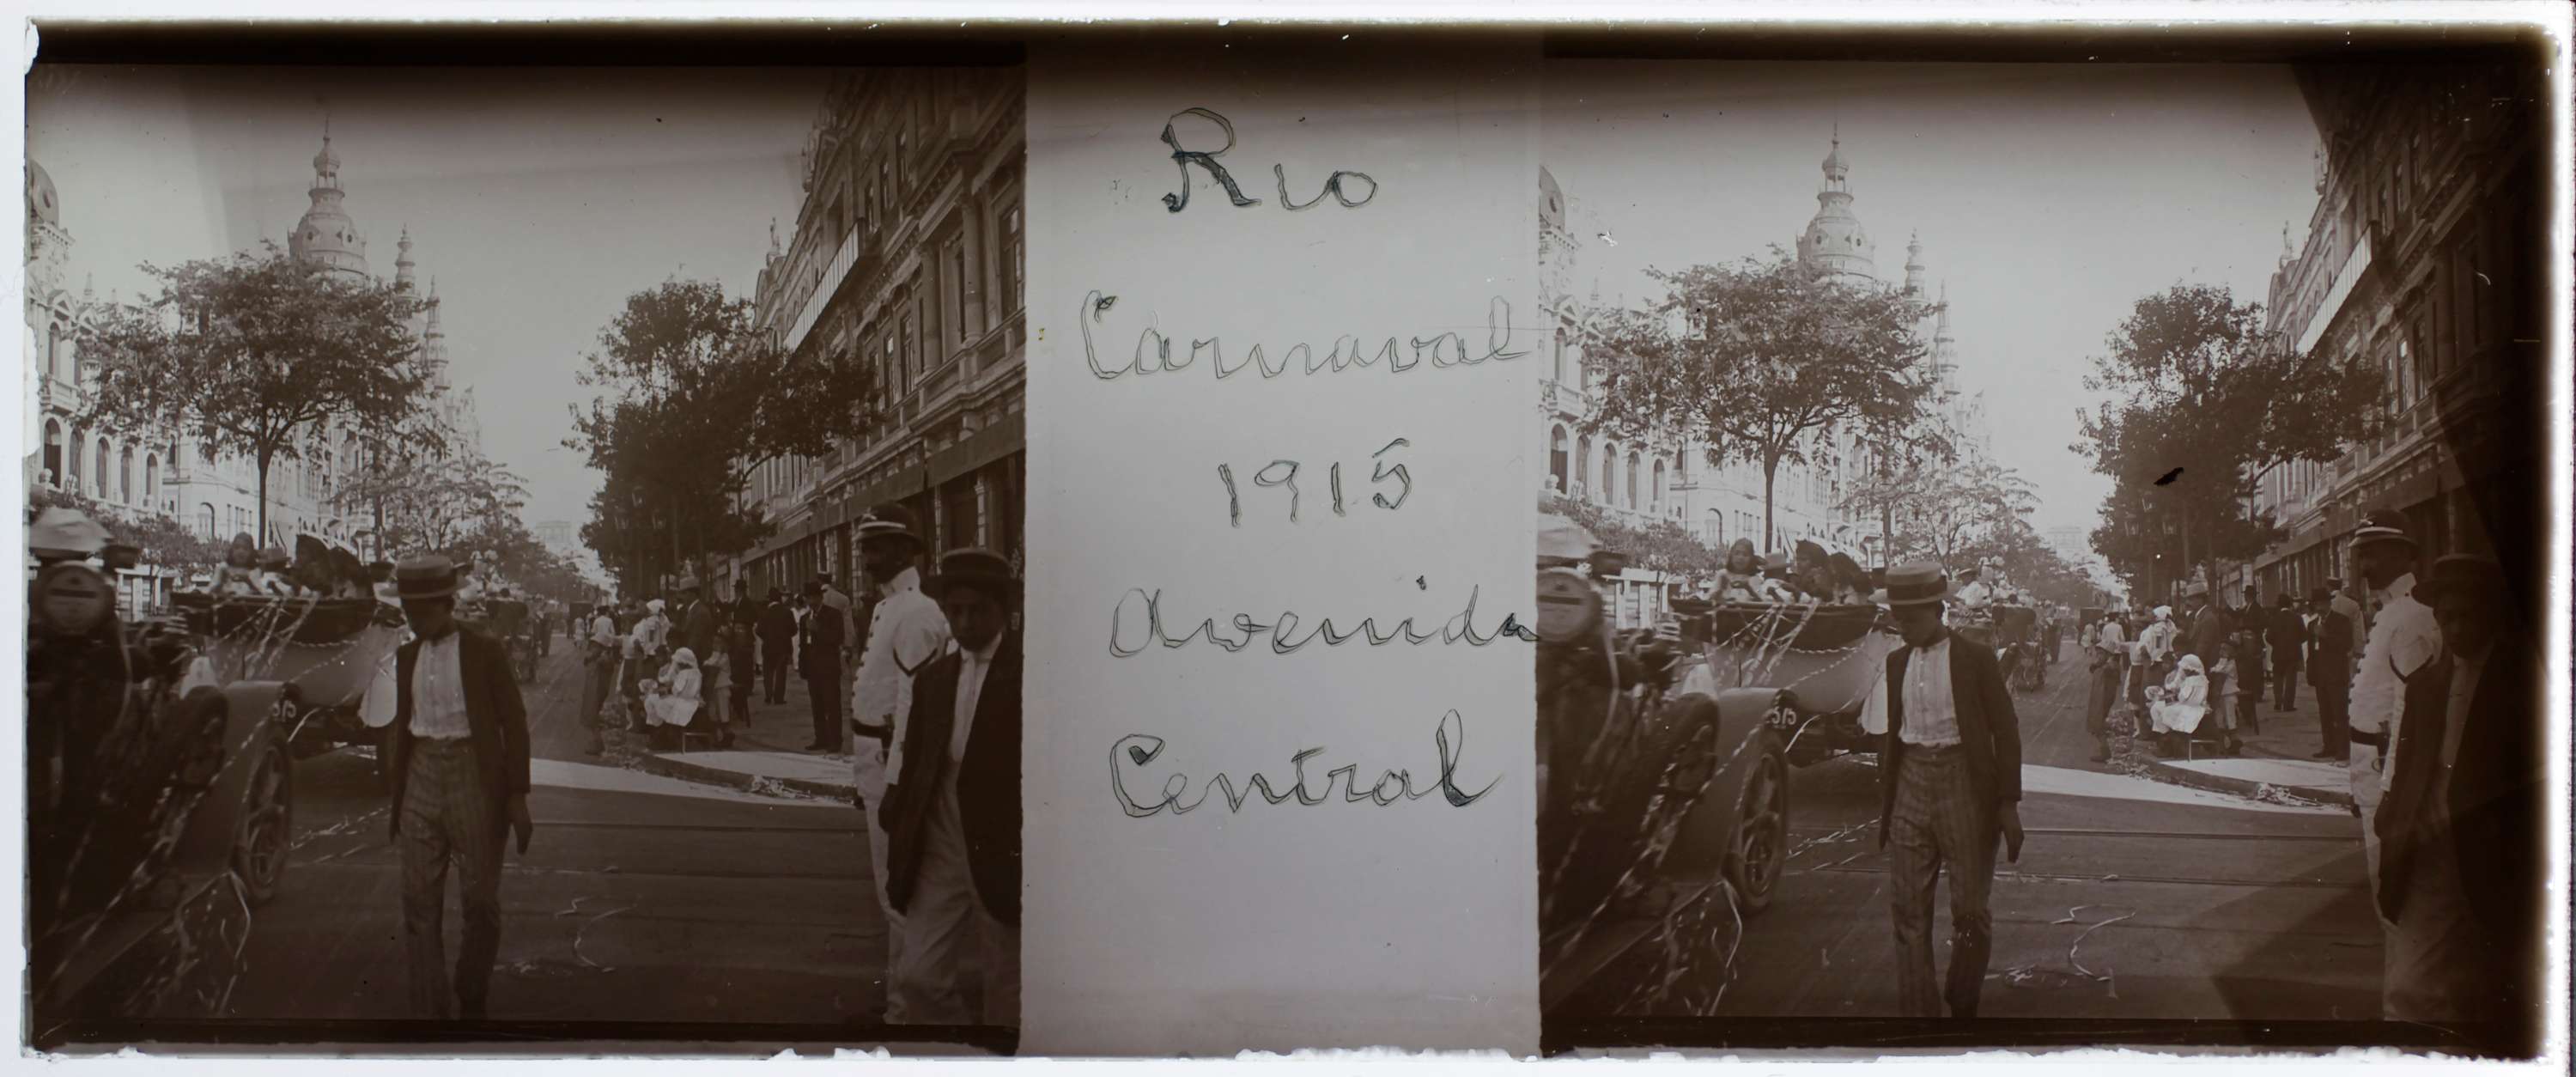 Rio
Carnaval
1915
Avenida
Central